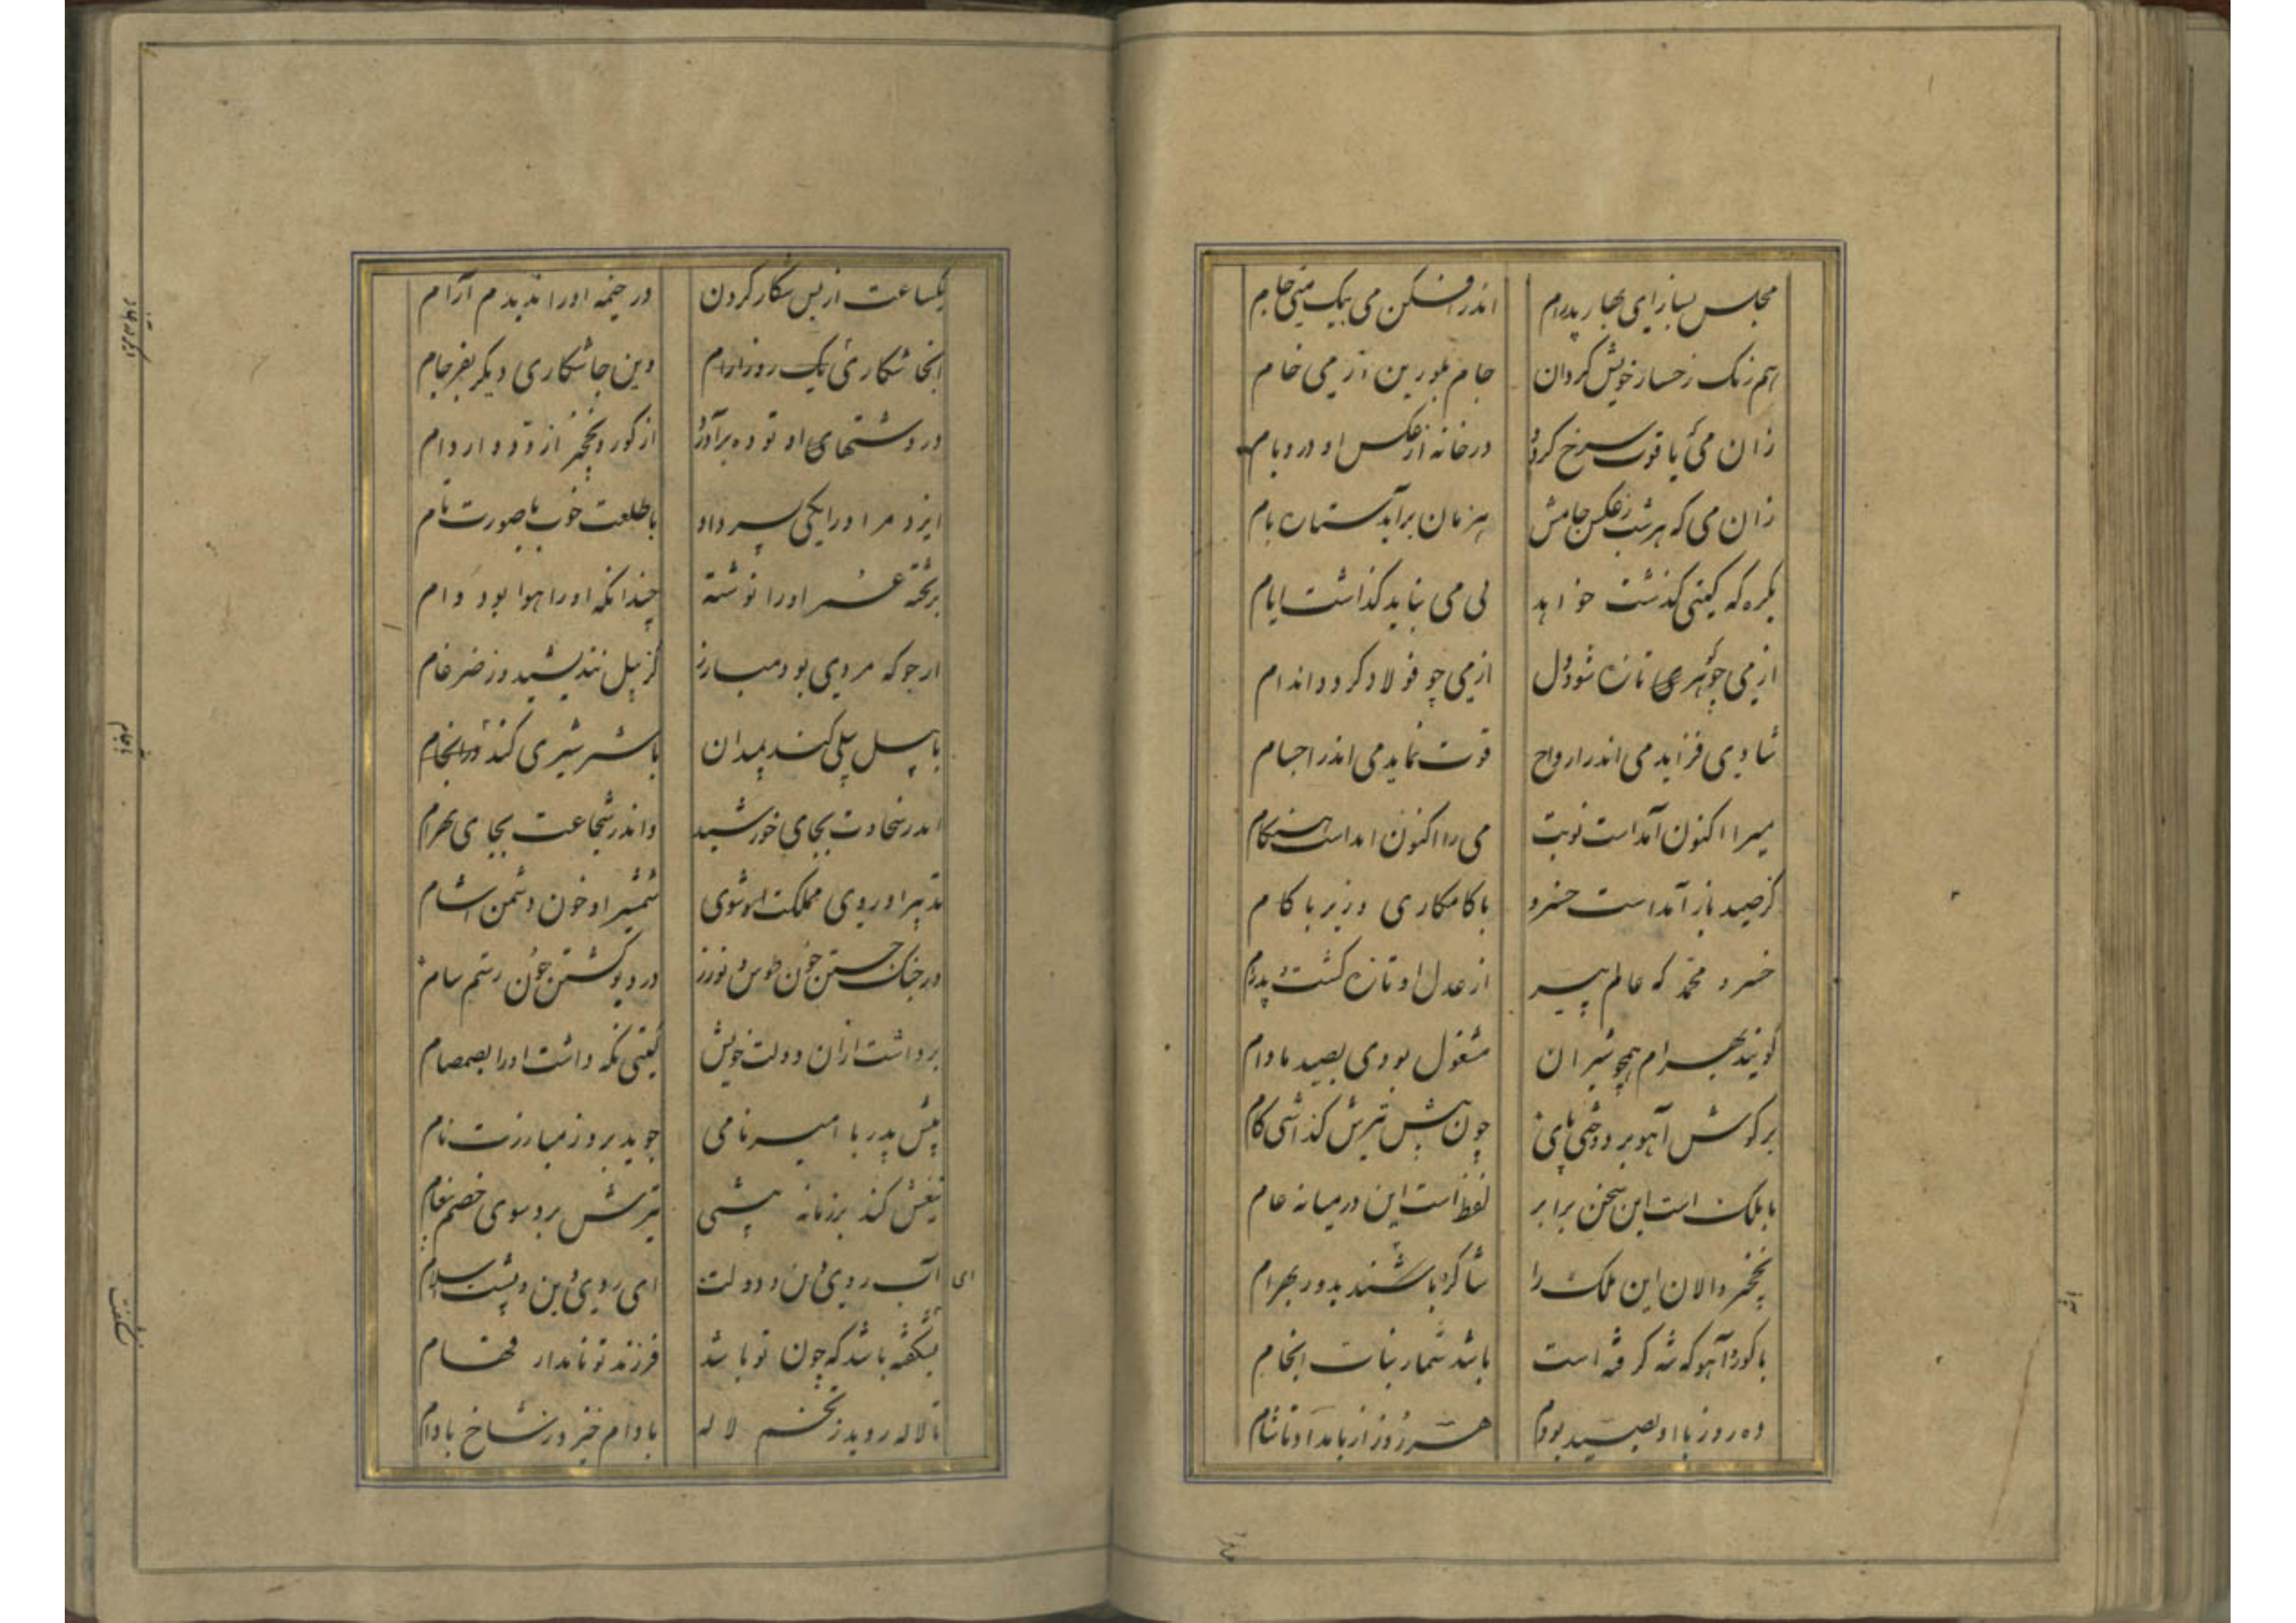 مجلس بساز ای بهار پدرام اندر افکن می بیک منی جام
هم رنک رخسار خویش کردان جام بلورین از می خام
زان می که یاقوت سرخ کردد در خانه از عکس او در و بام
زان می که هر شب ز عکس جامش هر زمان برآید ستاره بام
یکره که کیتی کذشت خواهد بی می نباید کذاشت ایام
از می جوهری تازه شود دل از می چو فولاد کردد اندام
شادی فزاید می اندر ارواح قوت نماید می اندر اجسام
میرا اکنون آمداست نوبت می را اکنون امداست هنکام
کز صید باز آمداست خسرو با کامکاری وز بر با کام
خسرو محمد که عالم پیر از عدل او تازه کشت پدرام
کویند بهرام همچو شیران مشغول بودی بصید مادام
بر کوش آهو بر دوختی پای چون پیش تیرش کذاشتی کام
با ملک است این سخن برابر لفظ است این در میانه عام
نخجیر والان این ملک را شاکرد باشند بدور بهرام
با کور و آهو که شه کرفته است باشد شمار نبات انجام
ده روز با او بصید بودم هر روز از بامداد تا شام
یکساعت از بس شکار کردن در خیمه او را ندیدم آرام
اینجا شکاری یک روز ارام وین جا شکاری دیکر بفرجام
در دشتهای او توده برآورد از کور و نخجیر از دد و از دام
ایزد مر او را یکی پسر داد با طلعت خوب با صورت تام
بر تخته عمر او را نوشته چندانکه او را هوا بود وام
ارجو که مردی بود مبارز کز پیل نندیشد وز ضرغام
با پیل پیلی کند بمیدان با شیر شیری کند در انجام
اندر سخاوت بجای خورشید واندر شجاعت بجای بهرام
تدبیر او روی مملکت شوی شمشیر او خون دشمن اشام
در جنک جستن چون طوس نوذر در دیو کشتن چون رستم سام
برداشت ازان دولت خویش کیتی نکه داشت او را بصمصام
پیش پدر با امیر نامی جوید بروز مبارزت نام
تیغش کند بر زمانه پیشی تیرش برد سوی خصم پیغام
ای آب روی و دولت ای روی دین و پشت اسلام
نشکفته باشد که چون تو باشد فرزند تو نامدار فهام
تا لاله روید ز تخم لاله بادام خیزد ز شاخ بادام